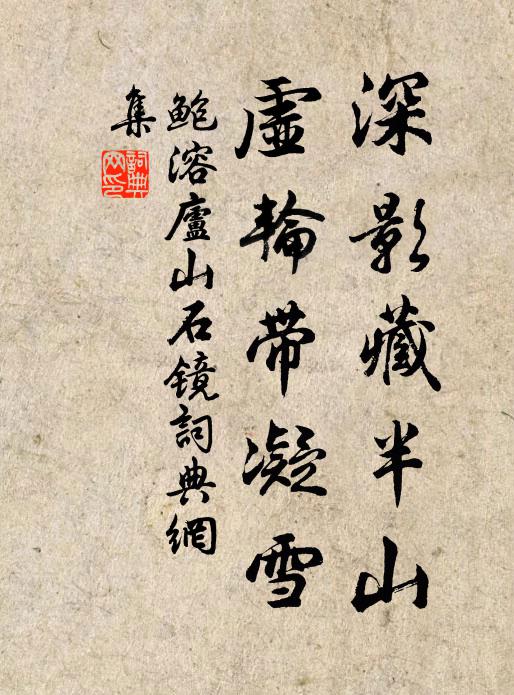 深影藏半山
虛輪帶凝雪
鮑溶廬山石鏡詞典網
集
詞典
网印